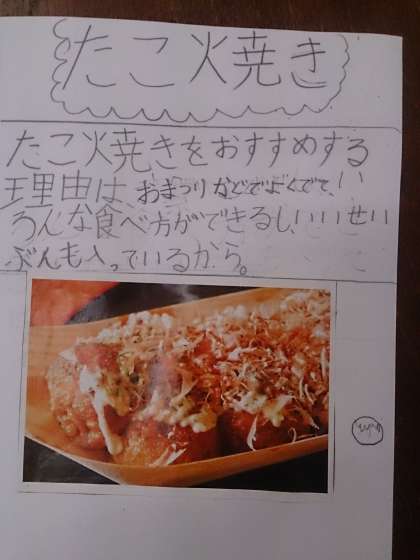 たこ焼き
たこ焼きをおすすめする
理由は、おまつりなどでよくでて、い
ろんな食べ方ができるし、いいせい
ぶんも入っているから。